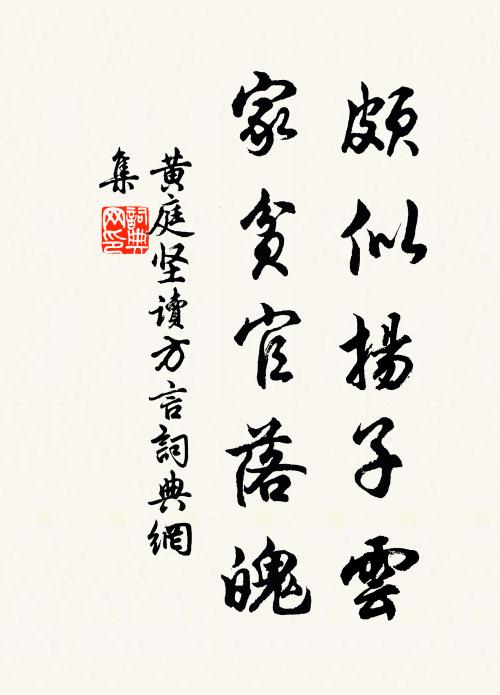 頗似揚子雲
家貧官落魄
黄庭坚讀方言詞典網
集
詞典
网印